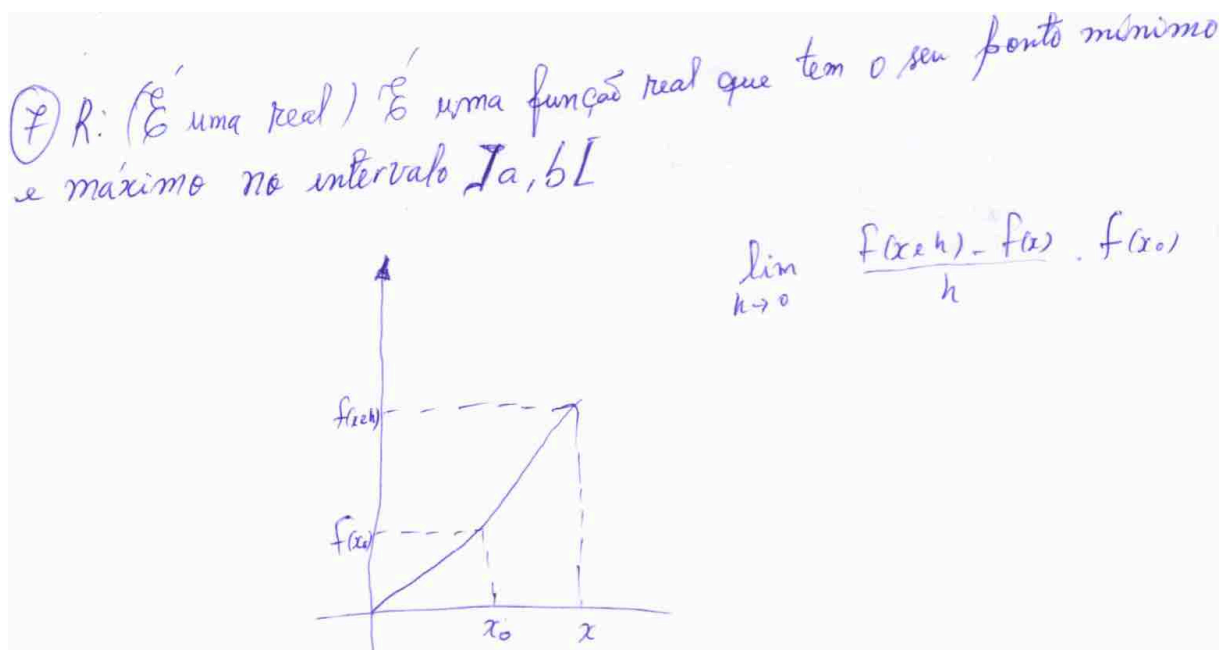 ⑦ R: (É uma real) É uma função real que tem o seu ponto mínimo
e máximo no intervalo ]a, b[
lim h→0 f(x+h) - f(x) / h . f(x₀)
f(x+h)
f(x₀)
x₀ x